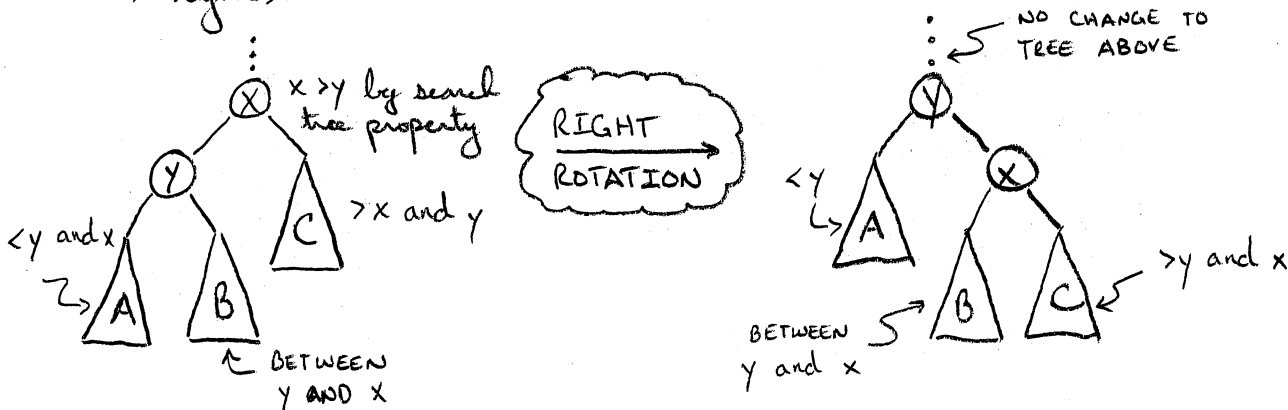 X
x > y by search
tree property
Y
C
> x and y
< y and x
A
B
BETWEEN
Y AND X
RIGHT
ROTATION
NO CHANGE TO
TREE ABOVE
Y
X
< y
A
B
C
> y and x
BETWEEN
y and x